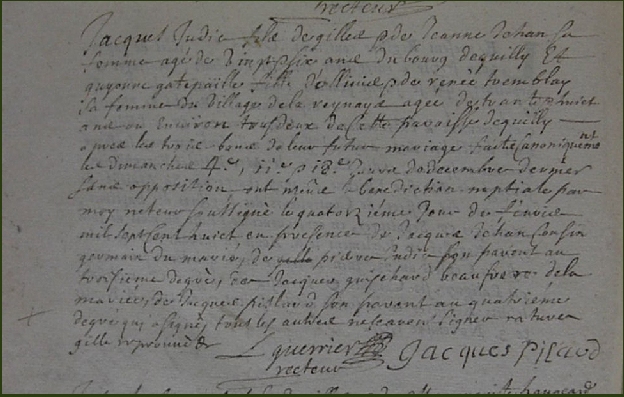 recteur
Jacques Judic fils de gilles & de Jeanne dehan sa
femme agé de vingt six ans du bourg de quilly Et
guyonne gatepaille fille d'ollivier & de renée tremblay
sa femme du village de la voynaye agée de trante & huict
ans ou Environ tous deux de Cette paroisse de quilly
après les trois bans de leur futur mariage faits Canoniquemt
les dimanches 4e, 11e & 18e Jours de decembre dernier
sans opposition ont receu la benediction nuptiale par
moy recteur soussigné le quatorzième Jour du février
mil sept cent huict en presence de Jacques dehan Cousin
germain du marié, de pierre Judic son parent au
troisieme degré, de Jacques guischard beaufrere de la
mariée, de Jacques pilaud son parent au quatrième
degré qui a signé, tous les autres ne scavent signer rature
gille approuvé
L guerrier Jacques Pilaud
recteur